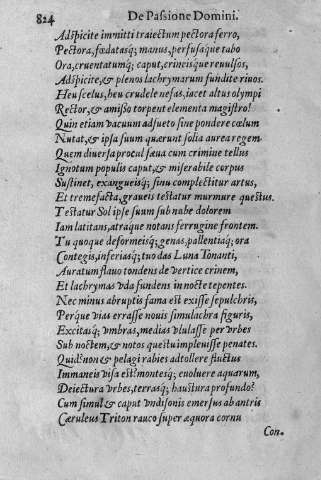 824
De Paſsione Domini.
Adſpicite immitti traiectum pectora ferro,
Pectora, fœdatasq; manus, perfuſaque tabo
Ora, cruentatumq; caput, crineisque reuulſos,
Adſpicite, & plenos lachrymarum fundite riuos.
Heu ſcelus, heu crudele nefas, iacet altus olympi
Rector, & amiſſo torpent elementa magiſtro!
Quin etiam vacuum adſueto ſine pondere cœlum
Nutat, & ipſa ſuum quærunt ſolia aurea regem.
Quem diuerſa procul ſæua cum crimine tellus
Ignotum populis caput, & miſerabile corpus
Suſtinet, exangueisq; ſinu complectitur artus,
Et tremefacta, graueis teſtatur murmure queſtus.
Teſtatur Sol ipſe ſuum ſub nube dolorem
Iam latitans, atraque notans ferrugine frontem.
Tu quoque deformeisq; genas, pallentiaq; ora
Contegis, inferiasq; tuo das Luna Tonanti,
Auratum flauo tondens de vertice crinem,
Et lachrymas vda fundens in nocte tepentes.
Nec minus abruptis fama eſt exiſſe ſepulchris,
Perque vias erraſſe nouis ſimulachra figuris,
Excitasq; vmbras, medias vlulaſſe per vrbes
Sub noctem, & notos queſtu impleuiſſe penates.
Quid? non & pelagi rabies adtollere fluctus
Immaneis viſa eſt? monteisq; euoluere aquarum,
Deiectura vrbes, terrasq; hauſtura profundo?
Cum ſimul & caput vndiſonis emerſus ab antris
Cæruleus Triton rauco ſuper æquora cornu
Con-